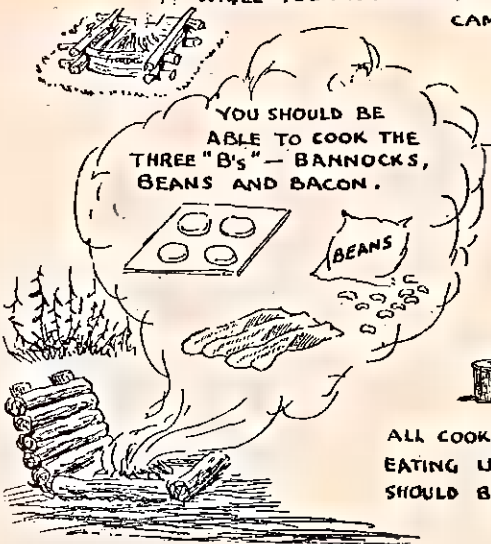 CAM
YOU SHOULD BE
ABLE TO COOK THE
THREE "B's" — BANNOCKS,
BEANS AND BACON.
BEANS
ALL COOK
EATING U
SHOULD B